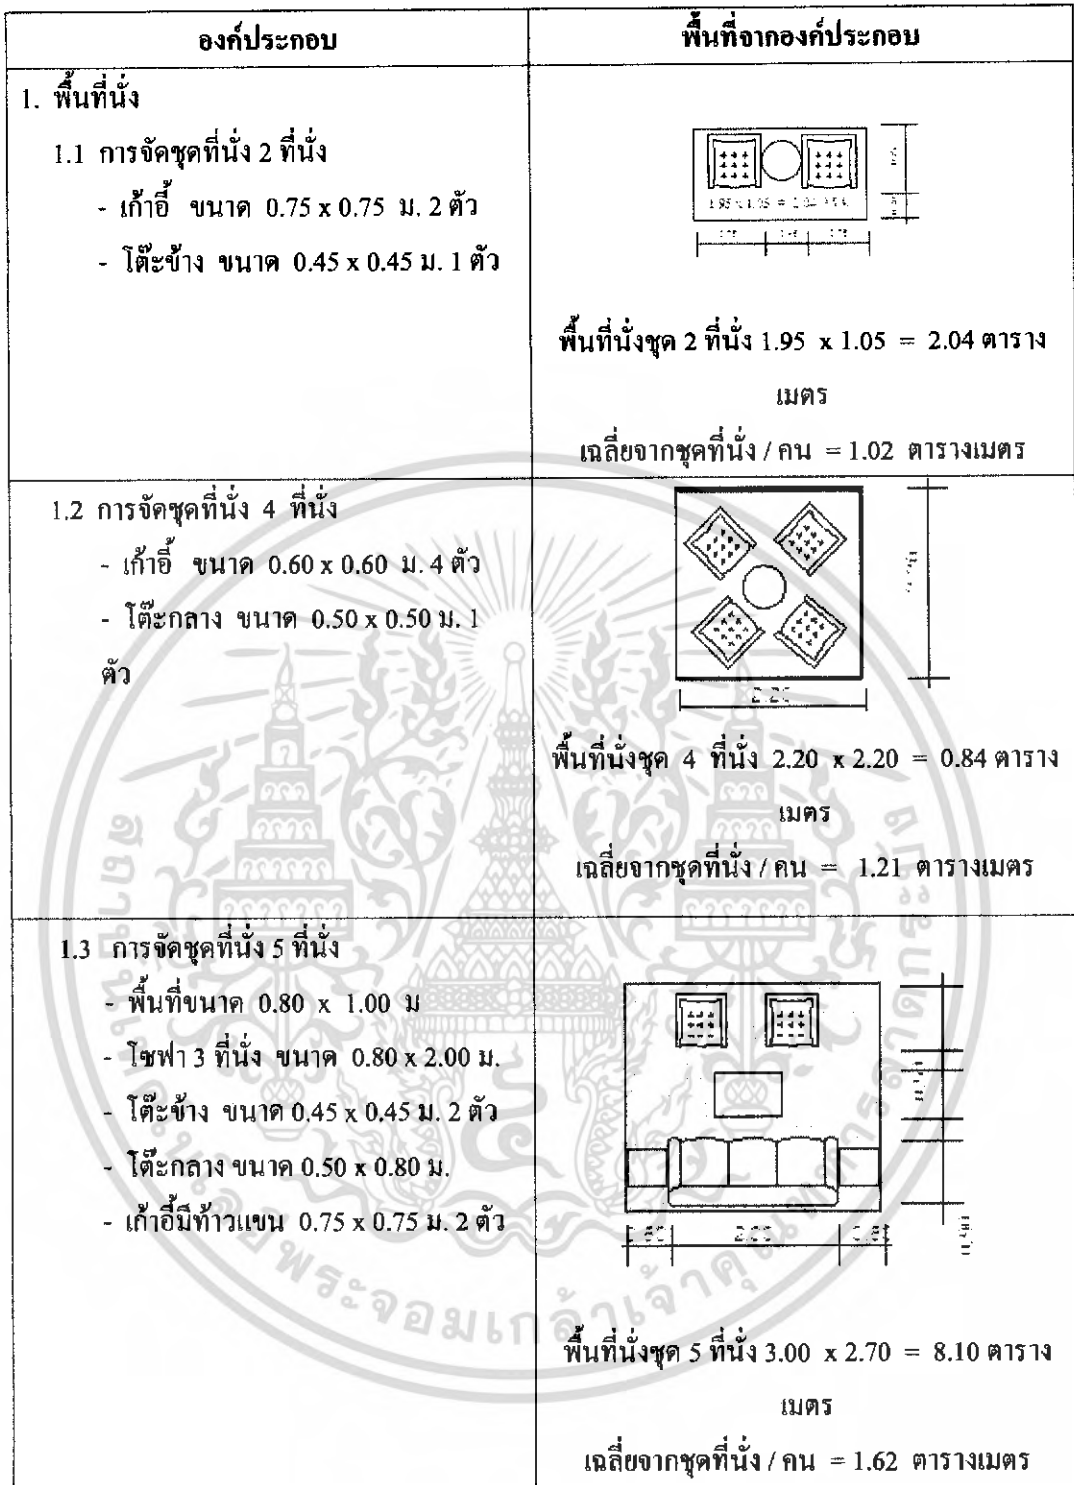 องค์ประกอบ
พื้นที่จากองค์ประกอบ
1. พื้นที่นั่ง
1.1 การจัดชุดที่นั่ง 2 ที่นั่ง
- เก้าอี้ ขนาด 0.75 x 0.75 ม. 2 ตัว
- โต๊ะข้าง ขนาด 0.45 x 0.45 ม. 1 ตัว
พื้นที่นั่งชุด 2 ที่นั่ง 1.95 x 1.05 = 2.04 ตาราง
เมตร
เฉลี่ยจากชุดที่นั่ง / คน = 1.02 ตารางเมตร
1.2 การจัดชุดที่นั่ง 4 ที่นั่ง
- เก้าอี้ ขนาด 0.60 x 0.60 ม. 4 ตัว
- โต๊ะกลาง ขนาด 0.50 x 0.50 ม. 1
ตัว
2.20
พื้นที่นั่งชุด 4 ที่นั่ง 2.20 x 2.20 = 0.84 ตาราง
เมตร
เฉลี่ยจากชุดที่นั่ง / คน = 1.21 ตารางเมตร
1.3 การจัดชุดที่นั่ง 5 ที่นั่ง
- พื้นที่ขนาด 0.80 x 1.00 ม
- โซฟา 3 ที่นั่ง ขนาด 0.80 x 2.00 ม.
- โต๊ะข้าง ขนาด 0.45 x 0.45 ม. 2 ตัว
- โต๊ะกลาง ขนาด 0.50 x 0.80 ม.
- เก้าอี้มีท้าวแขน 0.75 x 0.75 ม. 2 ตัว
2.00
พื้นที่นั่งชุด 5 ที่นั่ง 3.00 x 2.70 = 8.10 ตาราง
เมตร
เฉลี่ยจากชุดที่นั่ง / คน = 1.62 ตารางเมตร